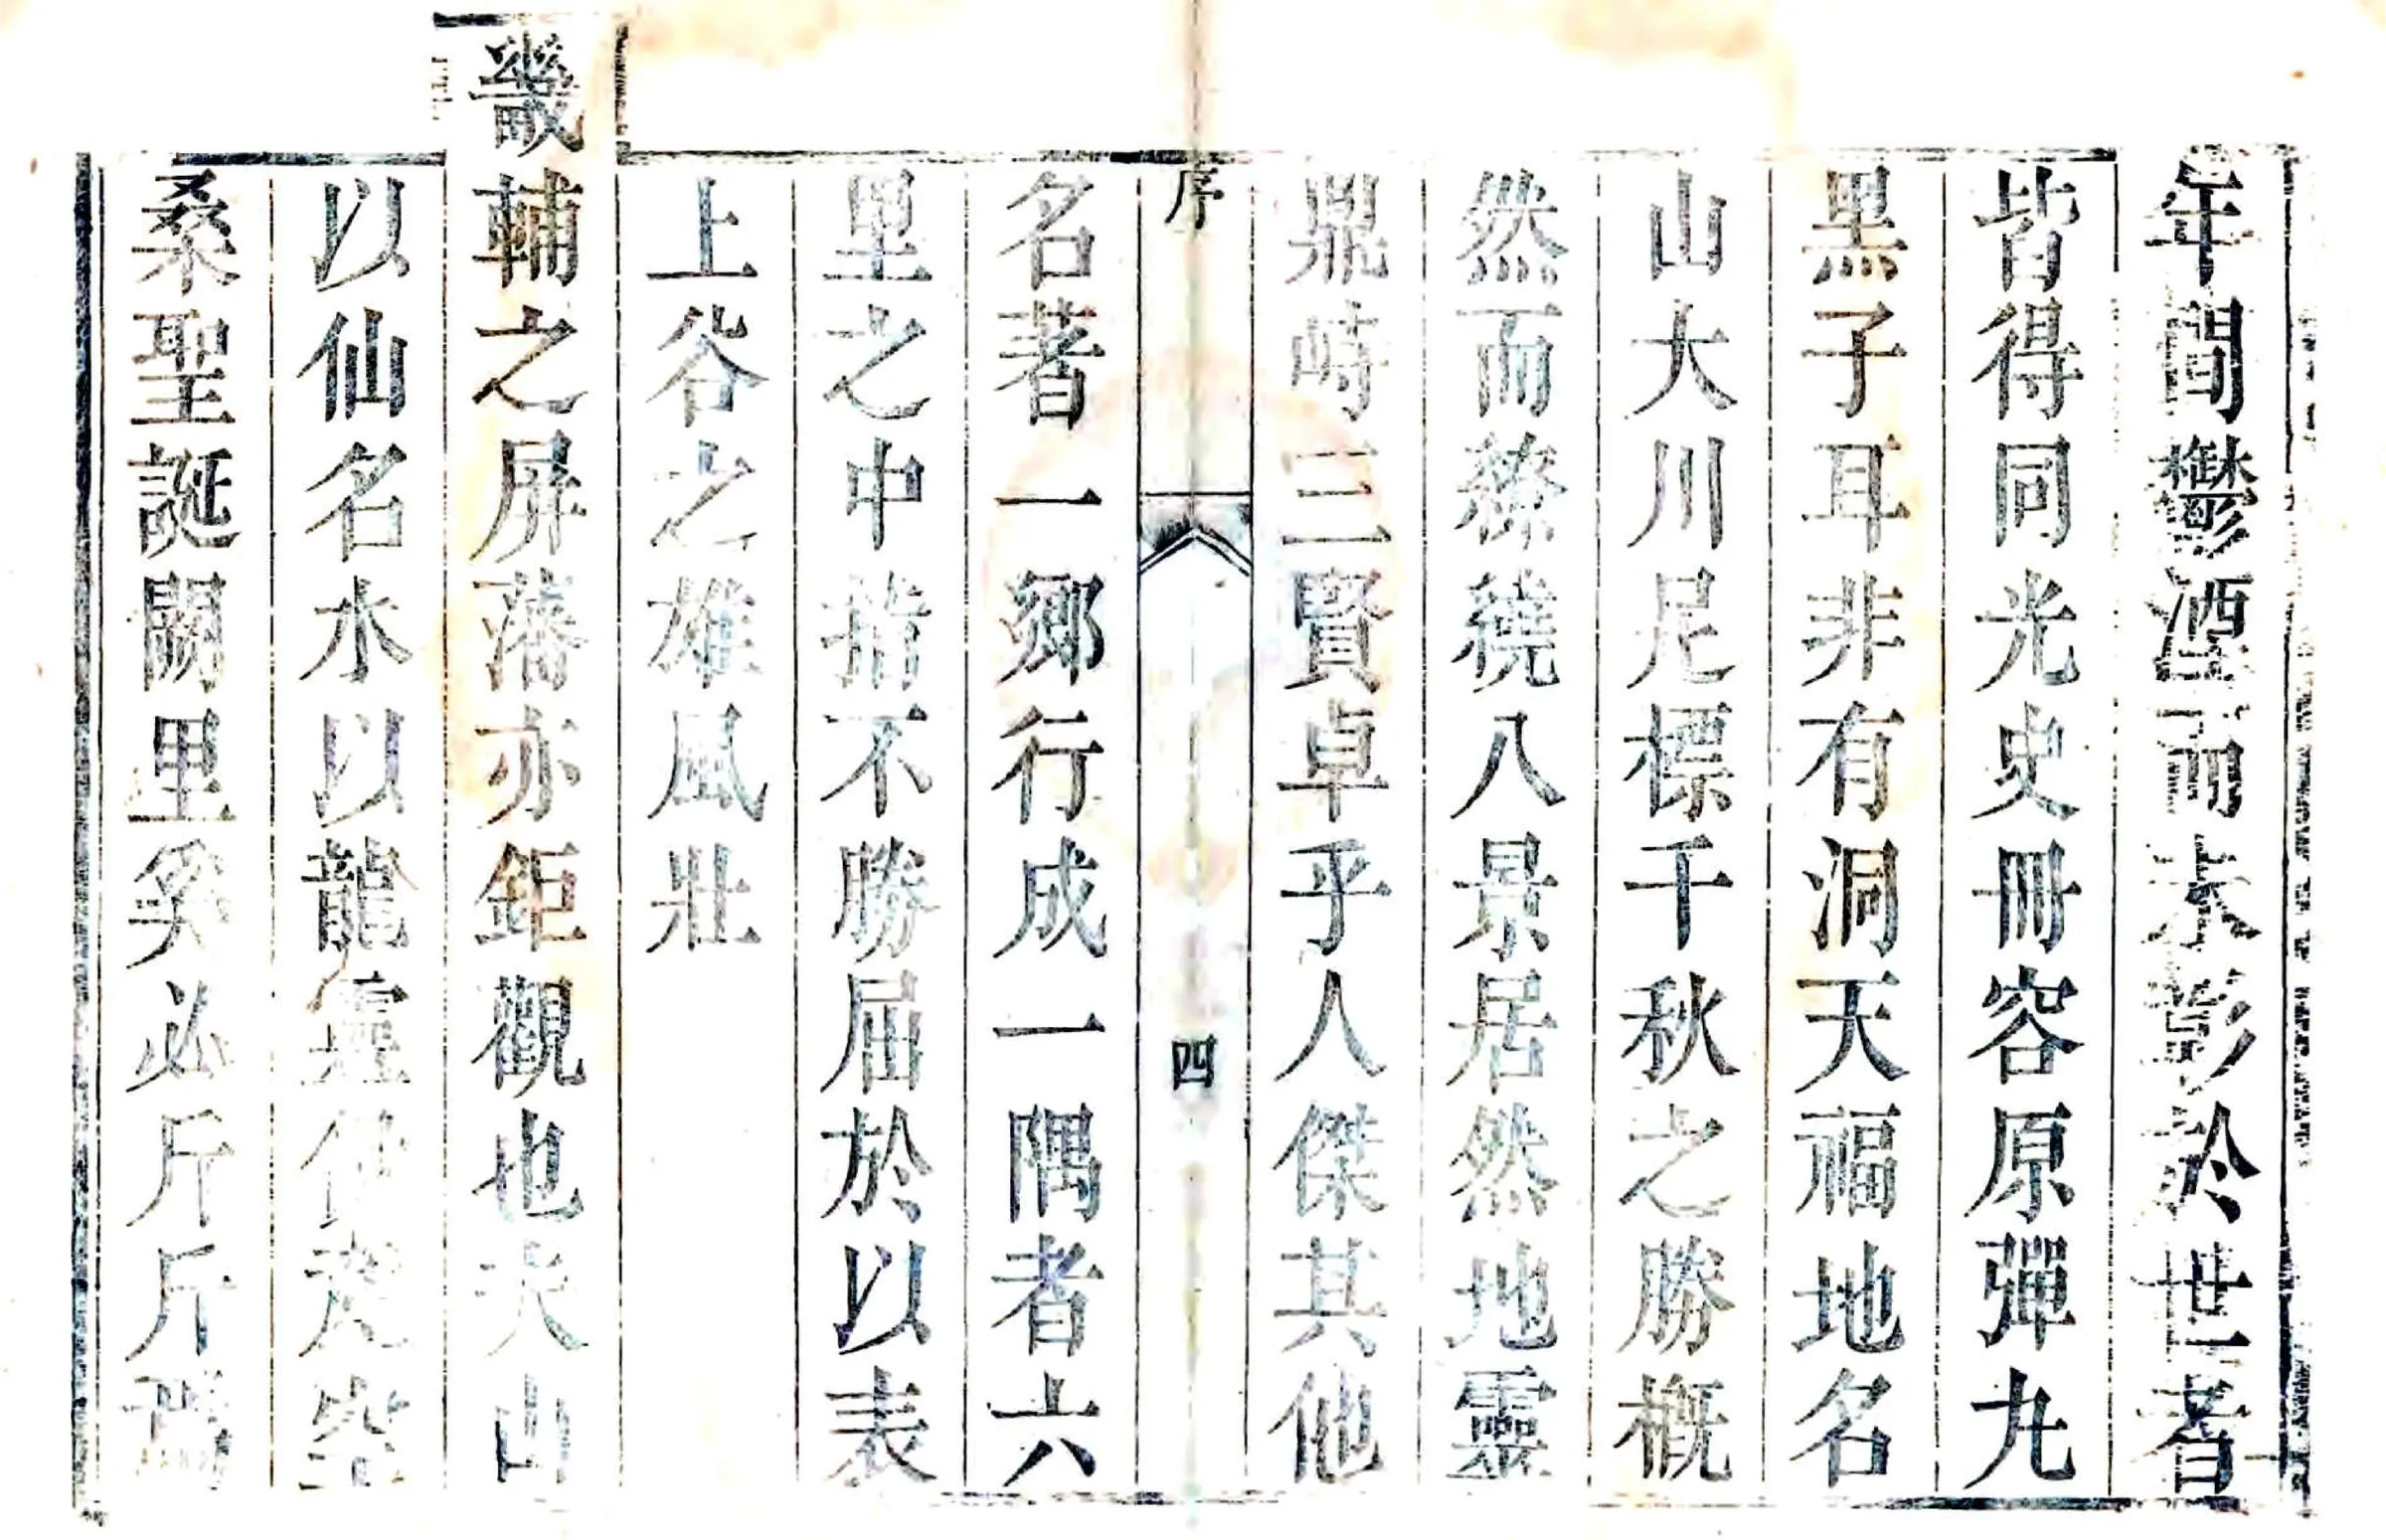 年間鬱湮而未彰於世者
皆得同光史冊容原彈丸
黑子耳非有洞天福地名
山大川足標千秋之勝概
然而繚繞八景居然地靈
鼎峙三賢卓乎人傑其他
序
四
名著一鄉行成一隅者六
里之中指不勝屈於以表
上谷之雄風壯
畿輔之屏藩亦鉅觀也夫山
以仙名水以龍靈傳
桑聖誕闕里奚必斤斤焉